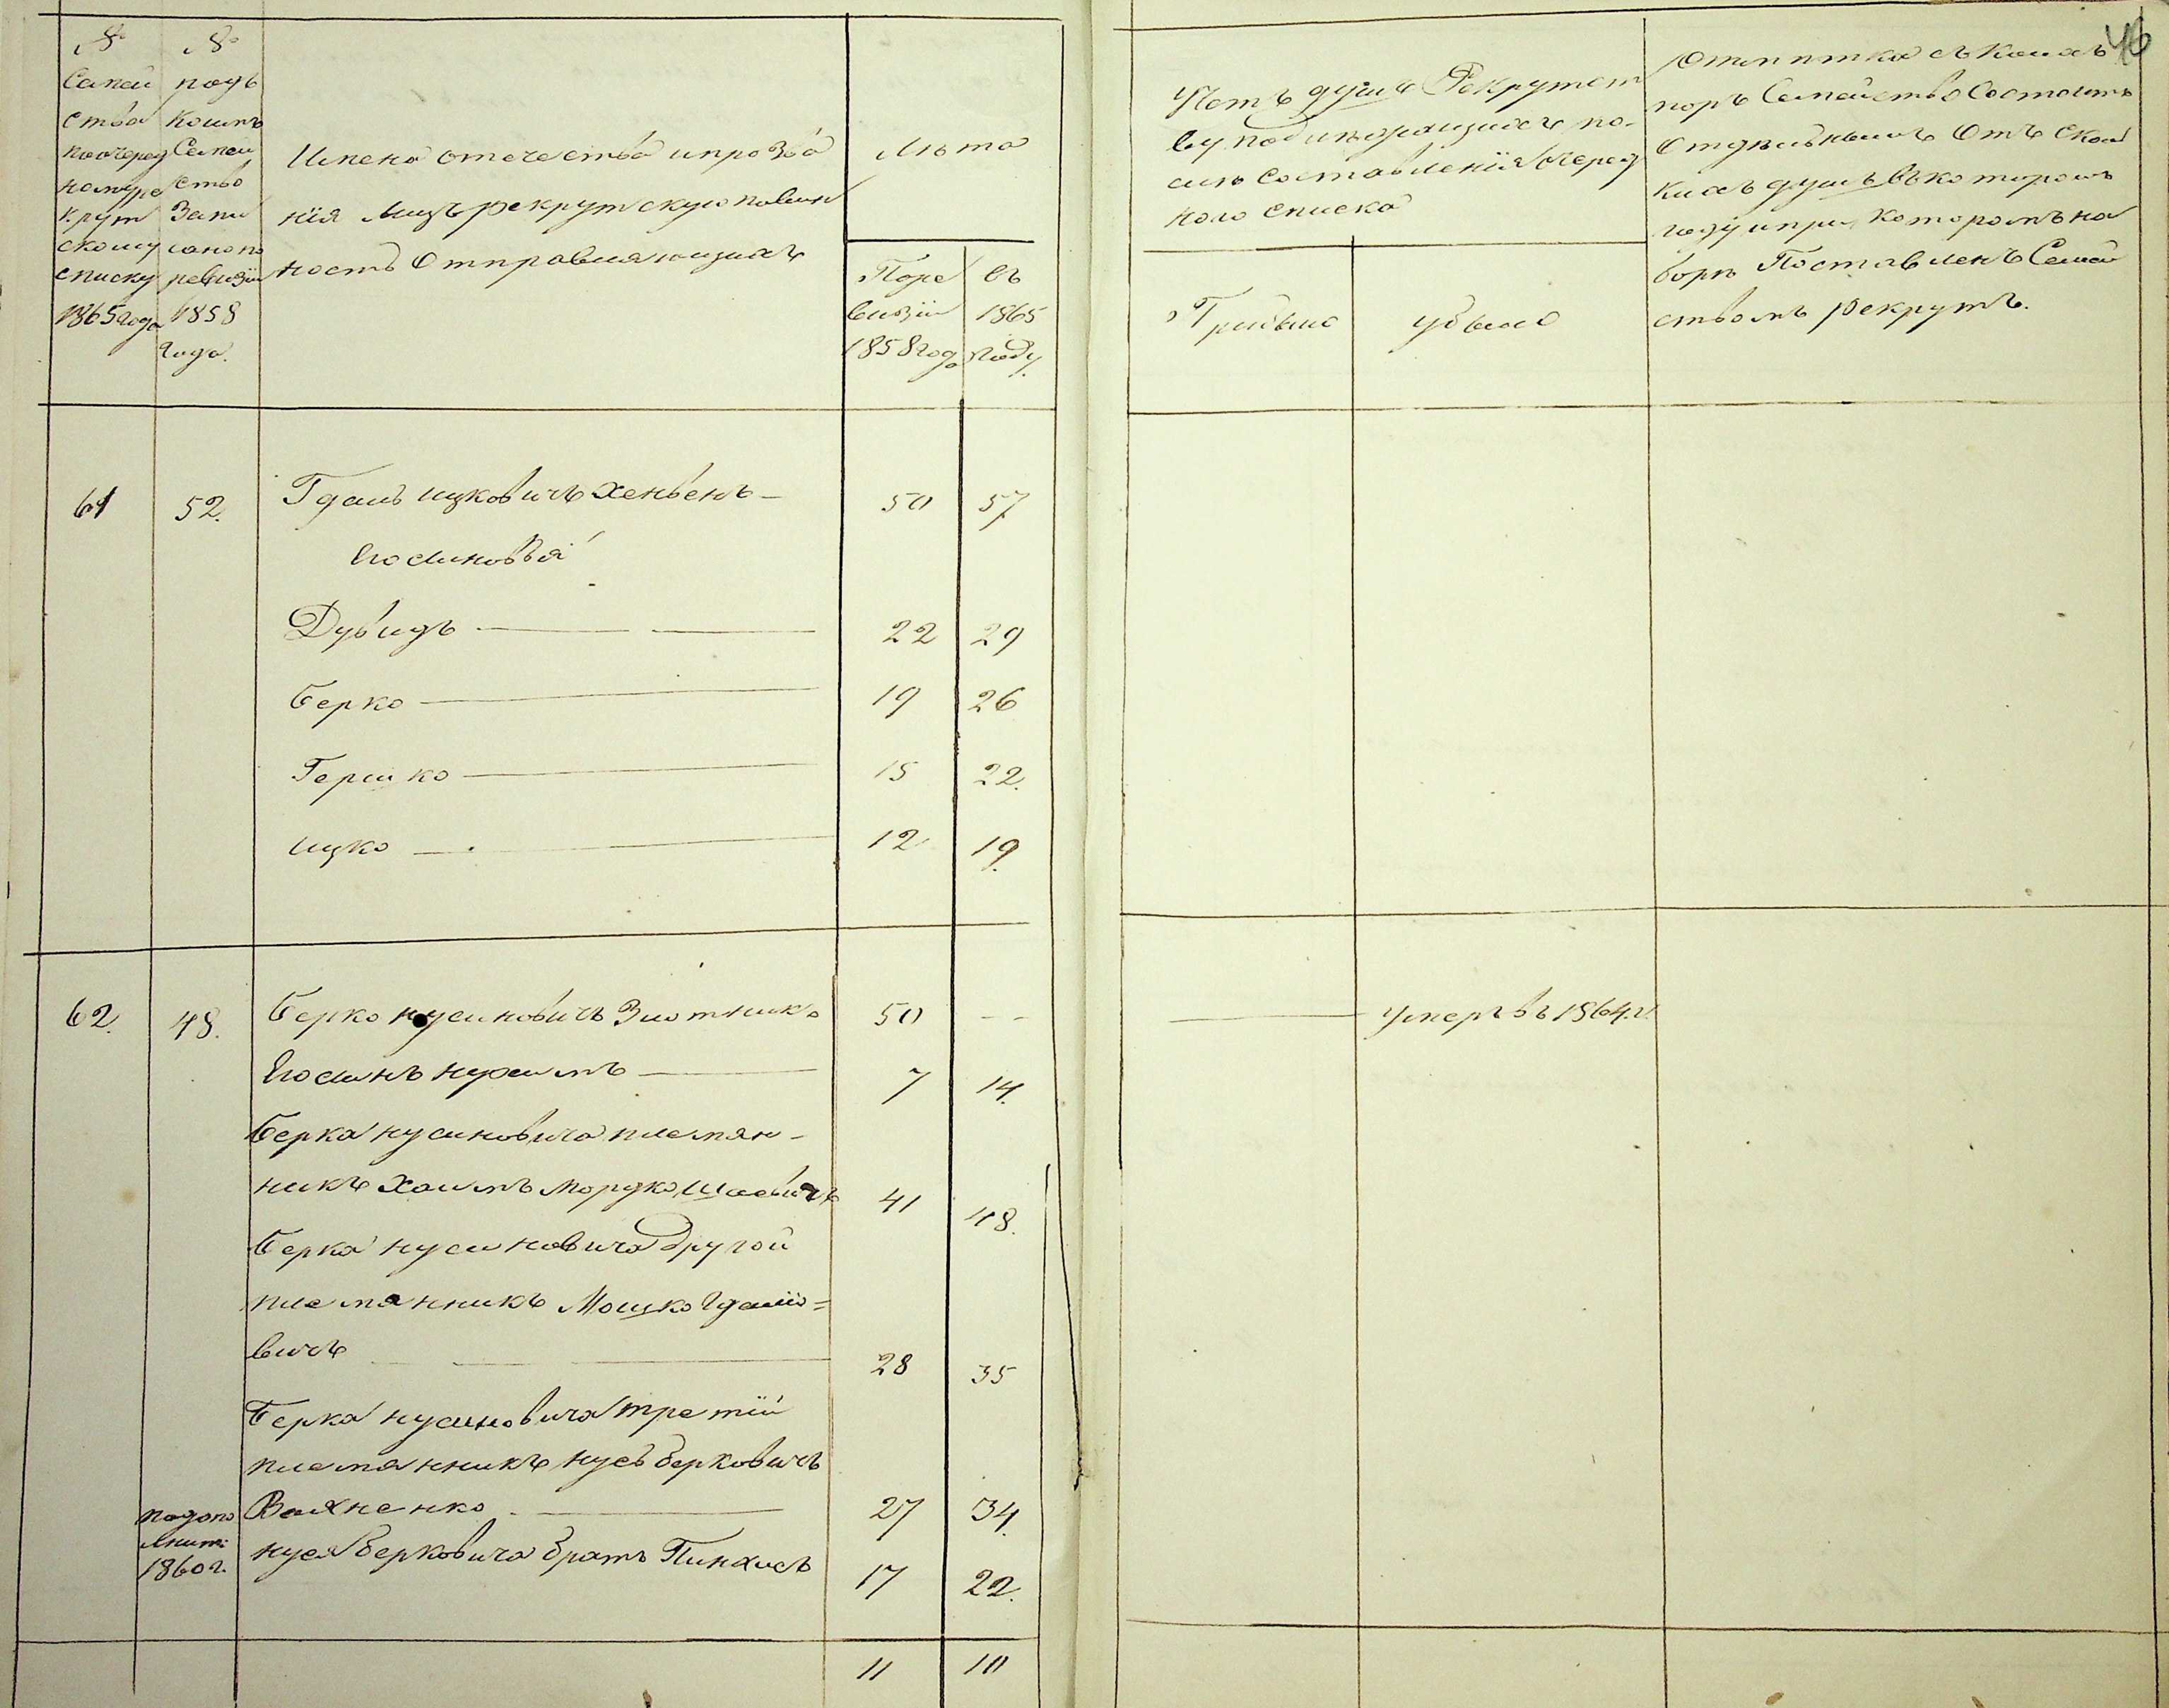 46
№
Семей
ства
по очеред
ному ре
крут
скому
списку
1865 года
№
подъ
коимъ
Семей
ство
Запи
сано по
ревизіи
1858
года.
Имена отечества и прозва
нія лицъ рекрутскую повин
ность отправляющихъ
Лѣта
По ре
визіи
1858 года
въ
1865
году.
Учетъ душъ Рекрутст
ву подлежащихъ по
слѣ составленія очеред
ного списка
Прибыло
убыло
Отмѣтка съ какихъ
поръ Семейство Состоитъ
отдѣльнымъ отъ скол
кихъ душъ въ которомъ
году и при которомъ на
борѣ Поставленъ Семей
ствомъ рекрутъ.
61 52. Гдаль ицковичъ Хенвенъ — 50 57
Его сыновья
Дувидъ — 22 29
Берко — 19 26
Гершко — 15 22.
ицко — 12 19.
62. 48. Берко нусиновичъ Злотникъ 50 — — — умеръ въ 1864 г.
Его сынъ нухимъ — 7 14.
Берка нусиновича племян-
никъ Хаимъ мордко Шаевичъ 41 48.
Берка нусиновича другой
племянникъ Мошко Гдаліо=
вичъ — 28 35
Берка нусиновича третій
племянникъ нусь берковичъ
Вахненко — 27 34.
по допо
лнит:
1860 г.
нуся берковича братъ Пинхасъ 17 22.
11 10